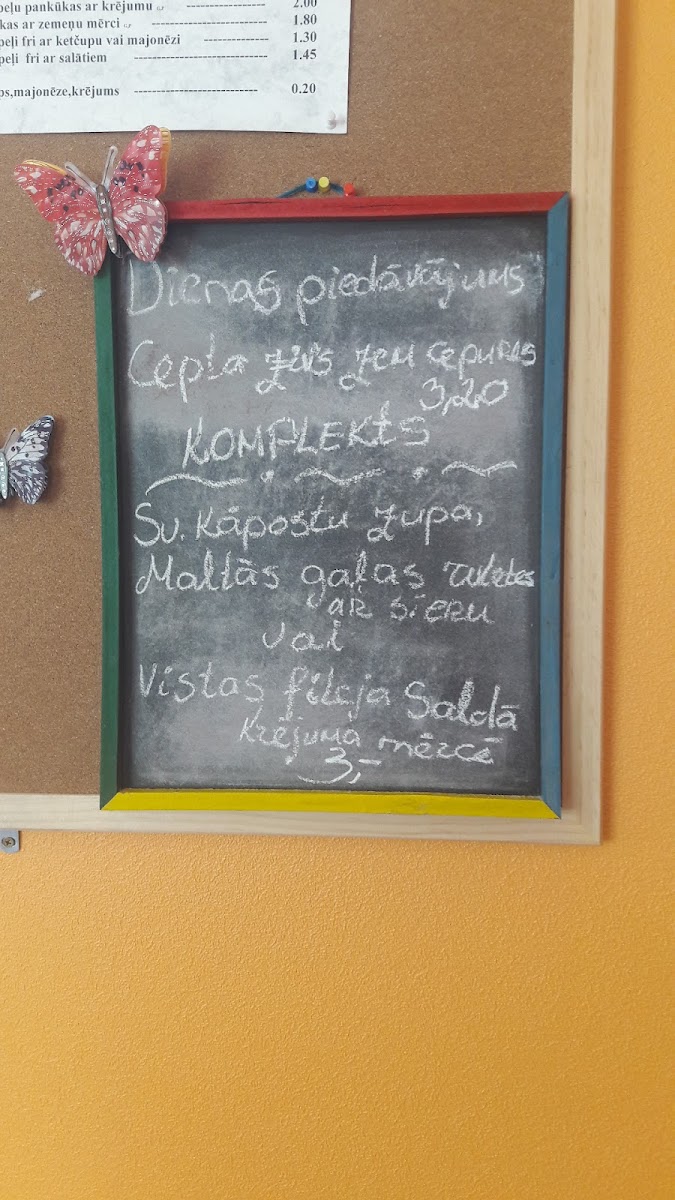 peļu pankūkas ar krējumu ---------------- 2.00
kas ar zemeņu mērci ----------------- 1.80
peļi fri ar ketčupu vai majonēzi ---------- 1.30
peļi fri ar salātiem -------------------- 1.45
ps,majonēze,krējums ------------------- 0.20
Dienas piedāvājums
Cepta zivs zem cepures
3,20
KOMPLEKtS
Sv. Kāpostu zupa,
Maltās gaļas ruletes
aR sieRu
vai
Vistas fileja Saldā
Krējuma mērcē
3,-